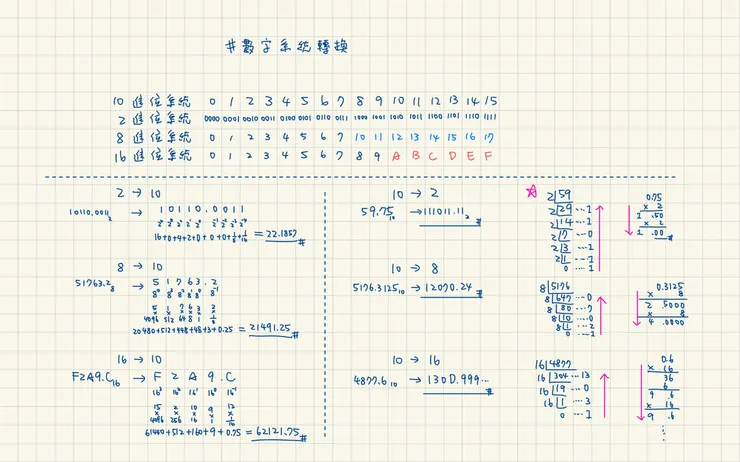 #數字系統轉換
10 進位系統 0 1 2 3 4 5 6 7 8 9 10 11 12 13 14 15
2 進位系統 0000 0001 0010 0011 0100 0101 0110 0111 1000 1001 1010 1011 1100 1101 1110 1111
8 進位系統 0 1 2 3 4 5 6 7 10 11 12 13 14 15 16 17
16 進位系統 0 1 2 3 4 5 6 7 8 9 A B C D E F
2 → 10
10110.0011₂ → 10110.0011
2⁴ 2³ 2² 2¹ 2⁰ 2⁻¹ 2⁻² 2⁻³ 2⁻⁴
= 22.1857 #
8 → 10
51763.2₈ → 51763.2
8⁴ 8³ 8² 8¹ 8⁰ 8⁻¹
5 1 7 6 3 2
x x x x x x
4096 512 64 8 1 1/8
20480+512+448+48+3+0.25 = 21491.25 #
16 → 10
F2A9.C₁₆ → F2A9.C
16³ 16² 16¹ 16⁰ 16⁻¹
15 2 10 9 12
x x x x x
4096 256 16 1 1/16
61440+512+160+9+0.75 = 62121.75 #
10 → 2
59.75₁₀ → 111011.11₂ #
10 → 8
5176.3125₁₀ → 12070.24 #
10 → 16
4877.6₁₀ → 130D.999... #
2|59
2|29 ...1
2|14 ...1
2|7 ...0
2|3 ...1
2|1 ...1
0 ...1
0.75
x 2
1 .50
x 2
1 .00 #
8|5176
8|647 ...0
8|80 ...7
8|10 ...0
8|1 ...2
0 ...1
0.3125
x 8
2 .5000
x 8
4 .0000
16|4877
16|304 ...13
16|19 ...0
16|1 ...3
0 ...1
0.6
x 16
36
6
9 .6
x 16
9 .6
⋮